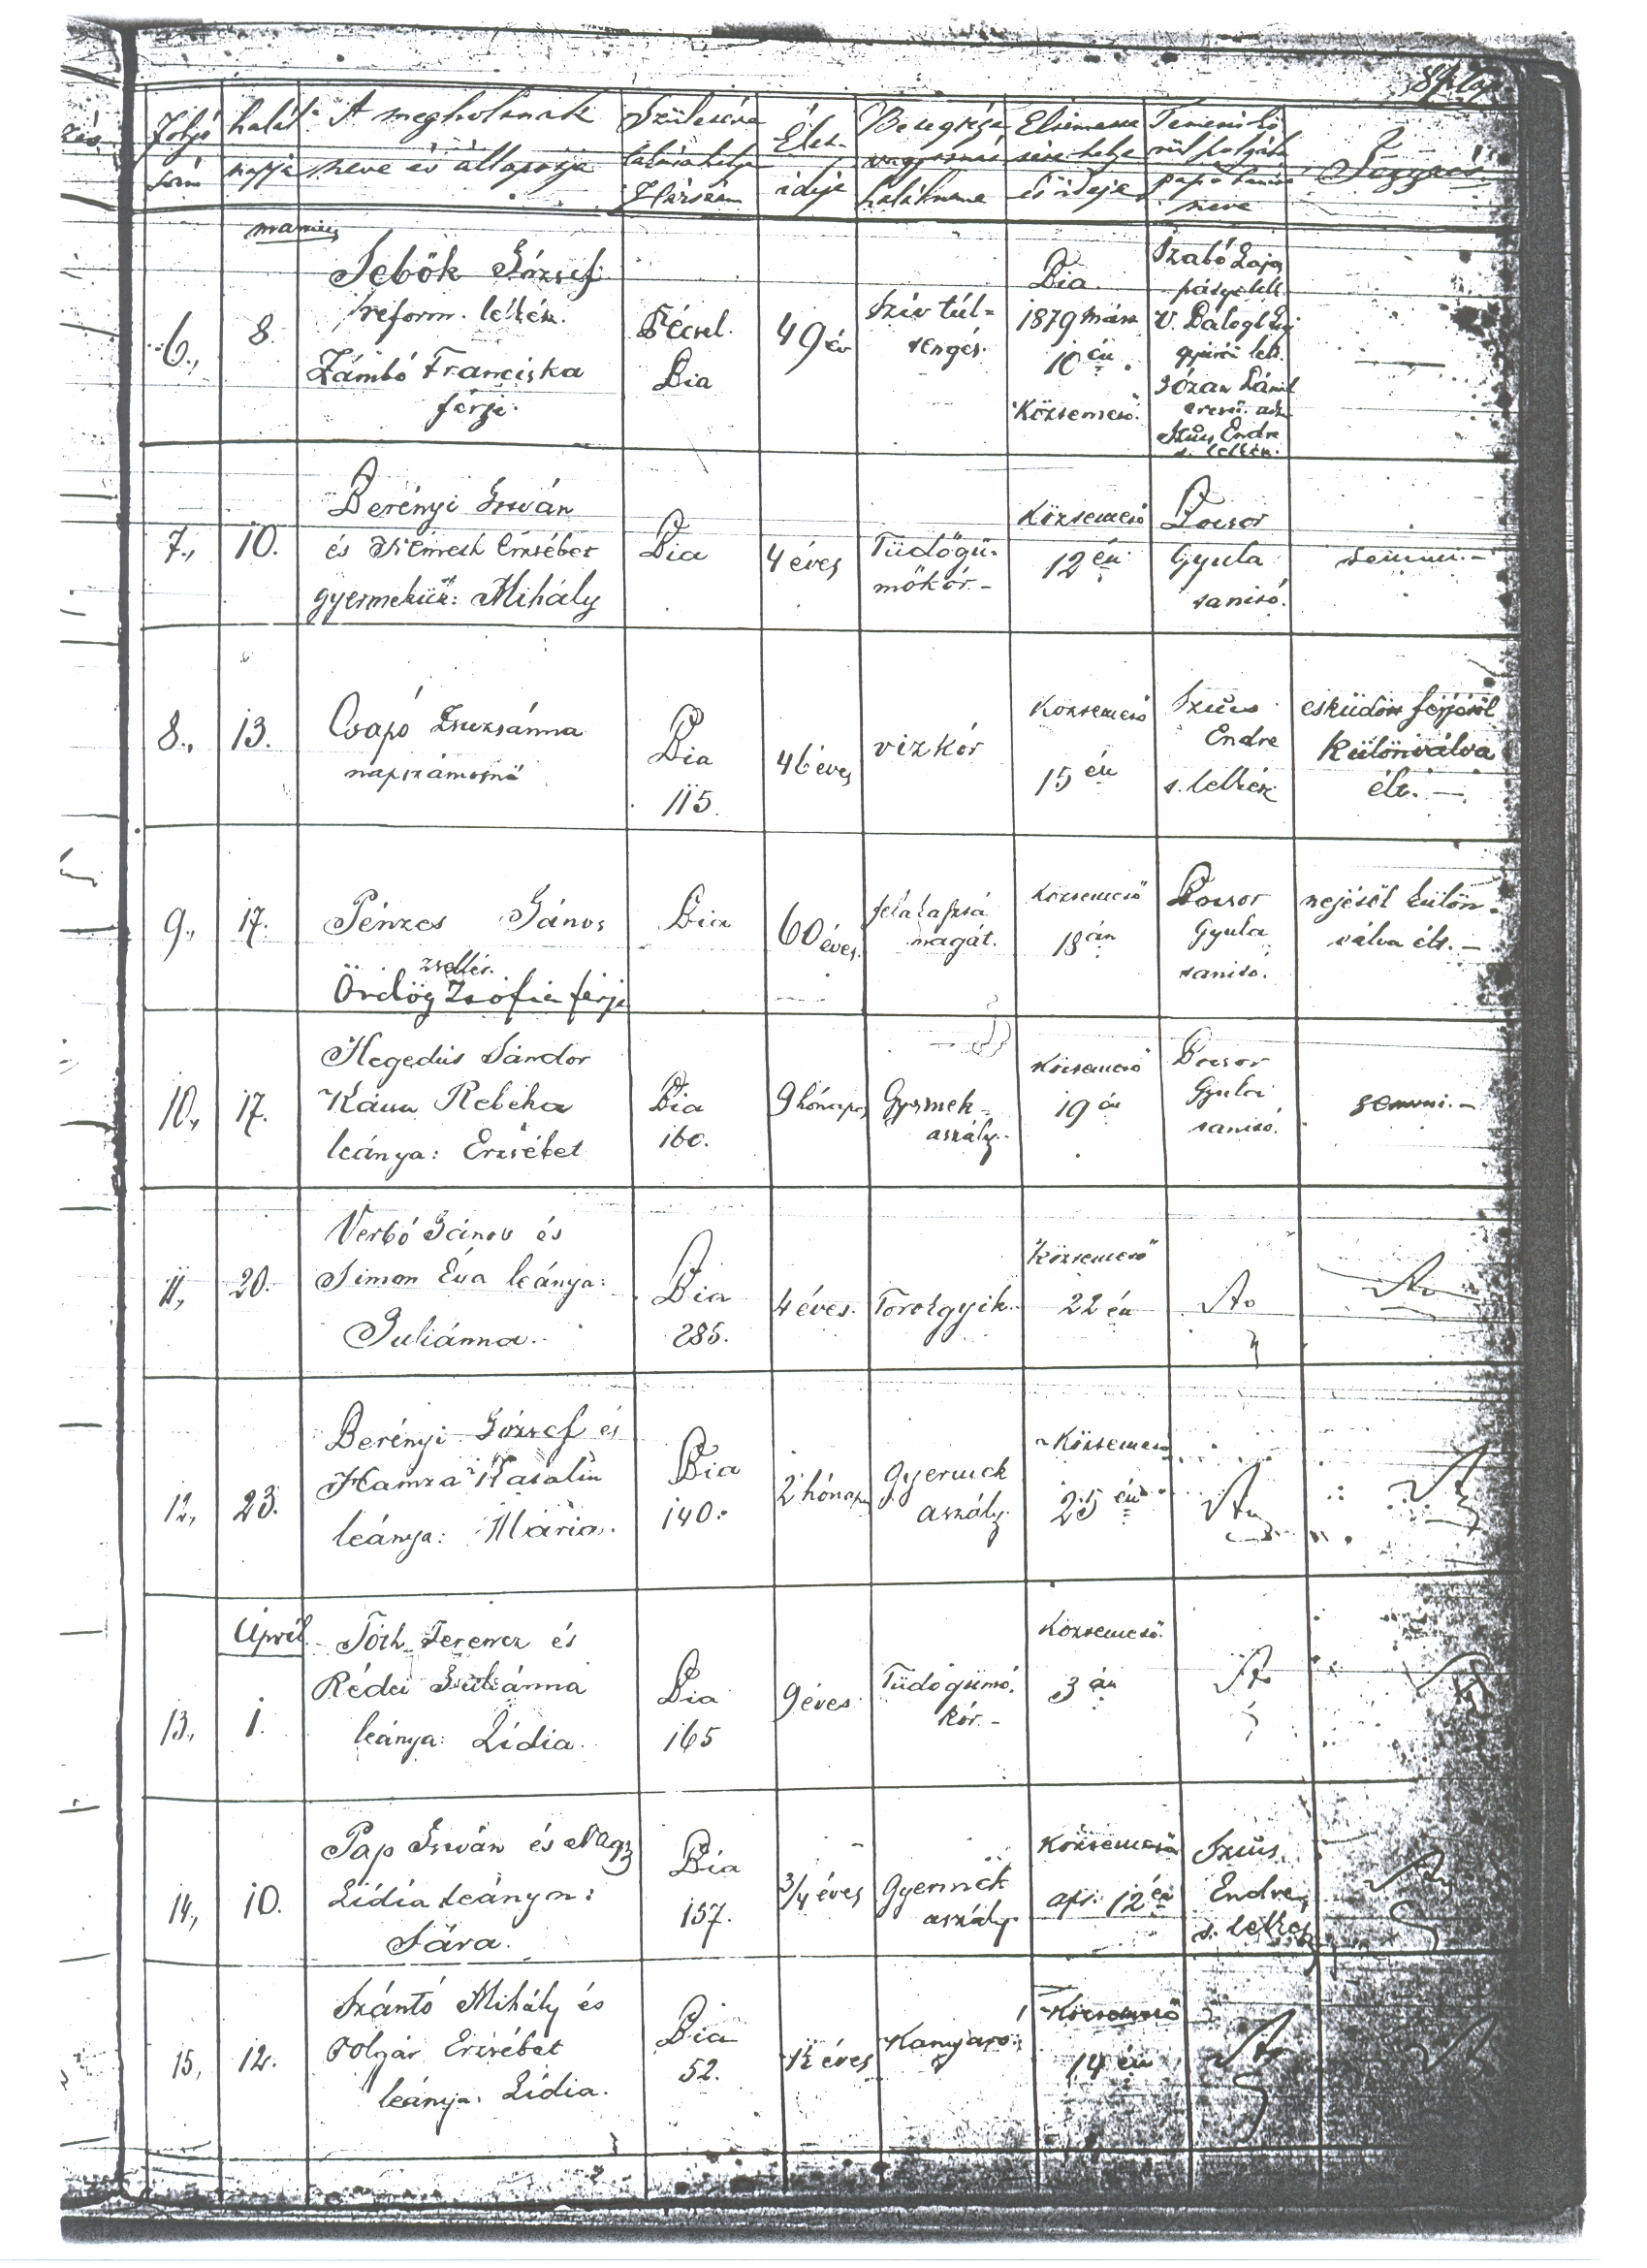 87. lap
Folyó
szám
halál
napja
A megholtnak
neve és állapotja
Születése
Házszám
Élet-
ideje
Betegsége
vagy
halálneme
helye
és ideje
neve
Jegyzés
6.,
8.
Sebők József
reform. lelkész.
Zámbó Franciska
férje.
Pécel.
Bia
49 év
Szív túl=
tengés.
Bia.
1879 márz
10 én.
Köztemető.
Szabó Lajos
V. Balogh
gyúrói lelk.
Józan Dániel
Szűcs Endre
s. lelkész.
7.,
10.
Berényi István
és Németh Erzsébet
gyermekük: Mihály
Bia
4 éves
Tüdőgü-
mőkór.-
Köztemető
12 én
Bocsor
Gyula
tanító.
semmi.-
8.,
13.
Csapó Zsuzsánna
napszámosnő
Bia
115.
46 éves
vízkór
Köztemető
15 én
Szűcs
Endre
s. lelkész
esküdött férjétől
különválva
élt.-
9.,
17.
Pénzes János
zsellér.
Ördög Zsófia férje
Bia
60 éves.
felakasztá
magát.
Köztemető
18 án
Bocsor
Gyula
tanító.
nejétől külön-
válva élt.-
10.,
17.
Hegedüs Sándor
Rebeka
leánya: Erzsébet
Bia
160.
9 hónapos
Gyermek-
aszály.
Köztemető
19 én
Bocsor
Gyula
tanító.
semmi.-
11.,
20.
Verbó János és
Simon Éva leánya:
Juliánna.
Bia
285.
4 éves.
Torokgyik.
Köztemető
22 én
12.,
23.
Berényi József és
Hamza Katalin
leánya: Mária.
Bia
140.
2 hónapos
Gyermek
aszály.
Köztemető
25 én
13.,
April
1.
Tóth Ferencz és
Rédei Juliánna
leánya: Lídia.
Bia
165
9 éves
Tüdőgümő.
kór.-
Köztemető.
3 án
14.,
10.
Pap István és Nagy
Lídia leánya:
Sára.
Bia
157.
3/4 éves
Gyermek
aszály.
Köztemető
apr. 12 én
Szűcs
Endre
s. lelkész
15.,
12.
Szántó Mihály és
Polgár Erzsébet
leánya: Lídia.
Bia
52.
1½ éves
Kanyaró.
Köztemető
14 én